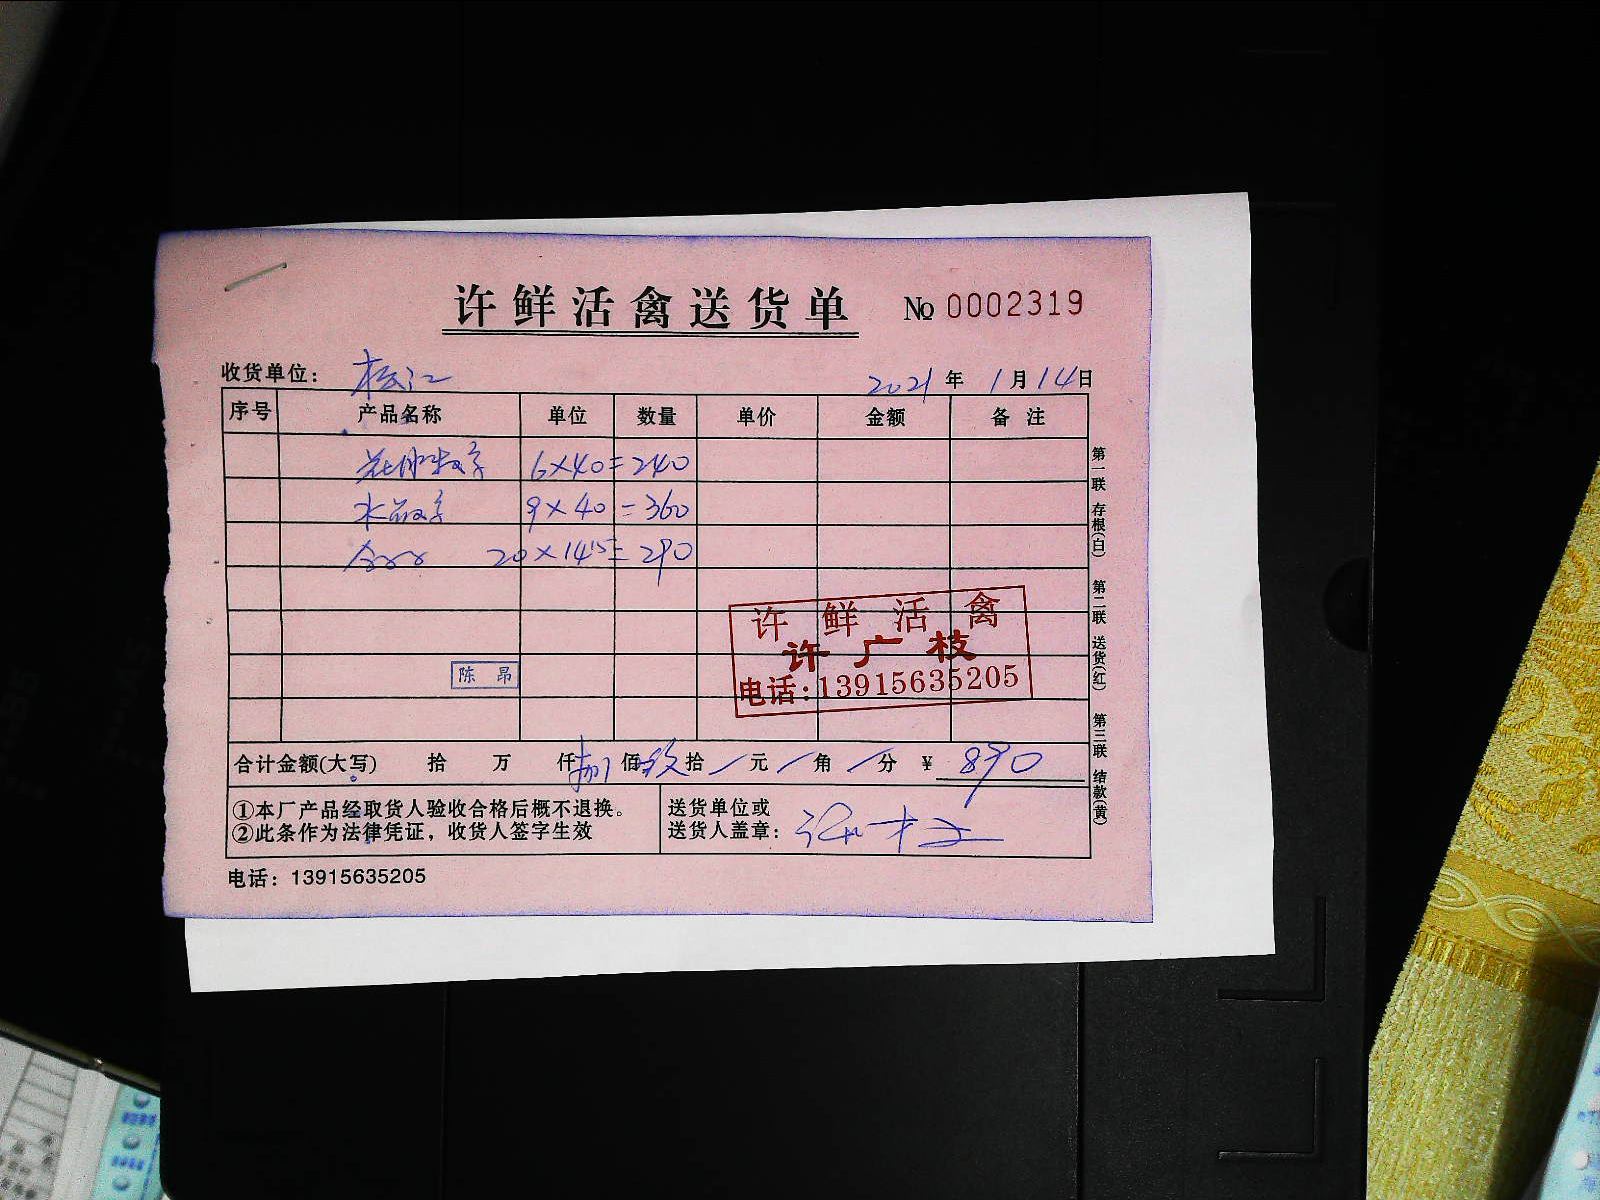 许鲜活禽送货单 No 0002319
收货单位： 松江 2021 年 1 月 14 日
序号 产品名称 单位 数量 单价 金额 备注
6×40=240
水 9×40=360
20×14.5=290
许鲜活禽
许广枝
电话:13915635205
陈昂
合计金额(大写) 拾 万 仟 捌 佰 玖 拾 / 元 / 角 / 分 ¥ 890
①本厂产品经取货人验收合格后概不退换。
②此条作为法律凭证，收货人签字生效
送货单位或
送货人盖章：
电话：13915635205
第一联 存根(白) 第二联 送货(红) 第三联 结款(黄)